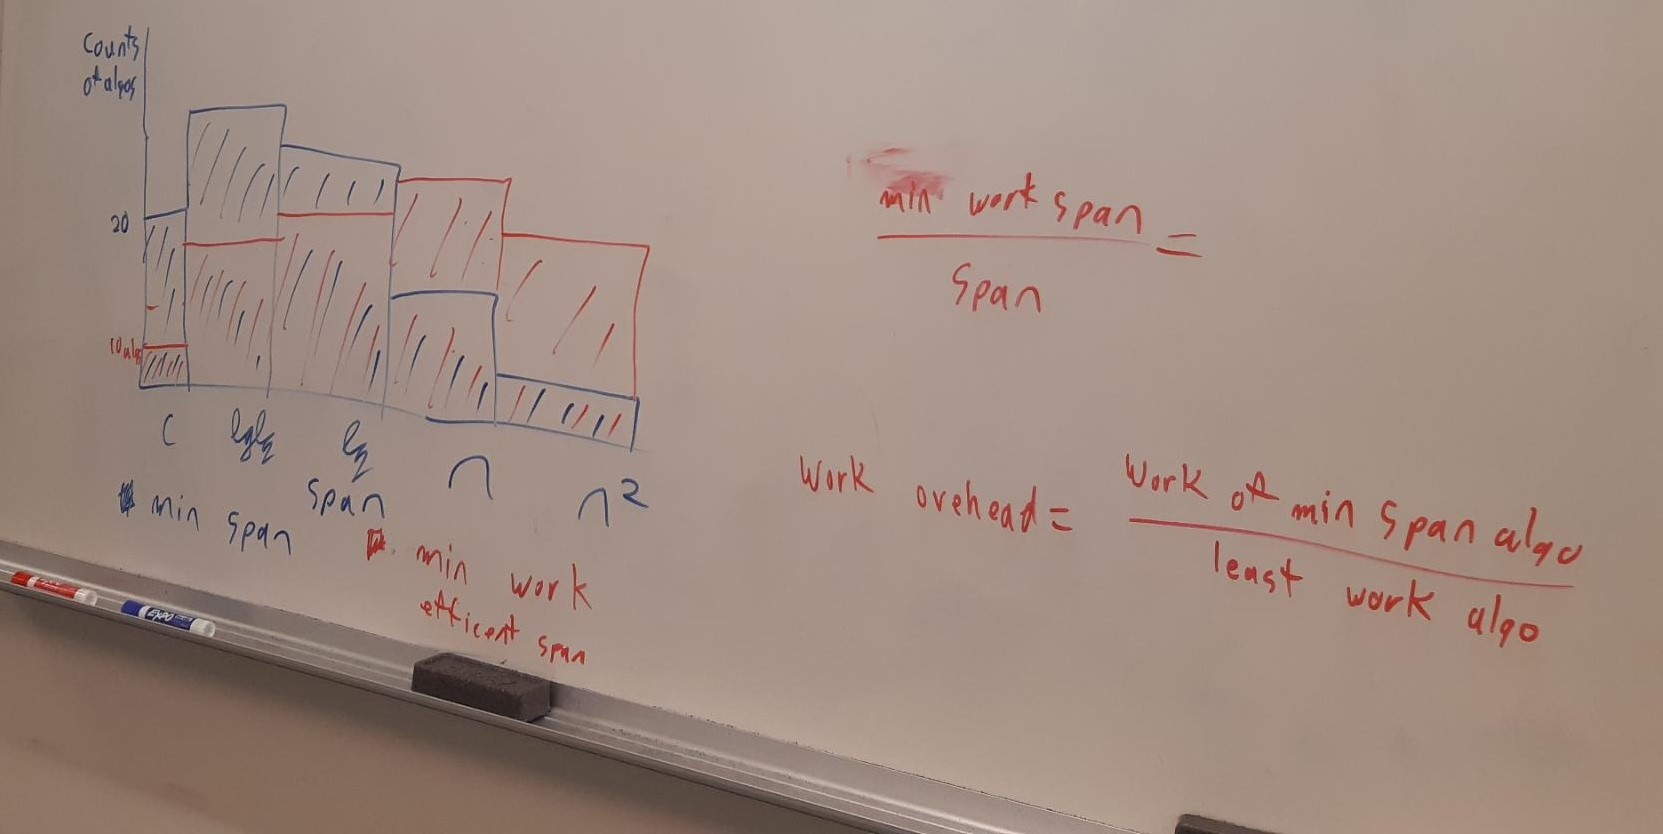 Counts
of algos
20
10 algs
C
lglg
lg
n
n²
span
min span
min work
efficent span
min work span
span
=
work ovehead =
work of min span algo
least work algo
EXPO